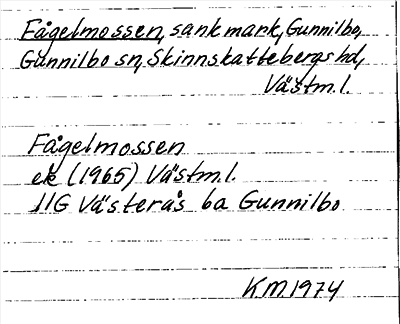 Fågelmossen, sankmark, Gunnilbo,
Gunnilbo sn, Skinnskattebergs hd,
Västm.l.
Fågelmossen
ek (1965) Västm.l.
11G Västerås 6a Gunnilbo
KM.1974